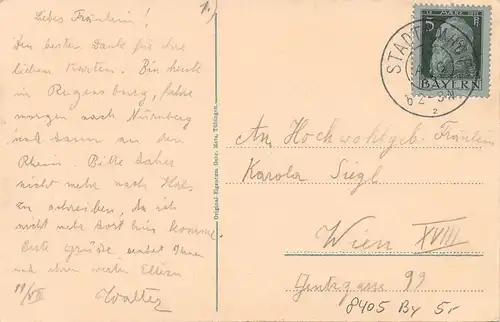 Liebes Fräulein!
Den besten Dank für Ihre
lieben Karten. Bin heute
in Regensburg, fahre
morgen nach Nürnberg
und dann an den
Rhein. Bitte daher
nicht mehr nach
zu schreiben, da ich
nicht mehr dort hin komme.
Beste Grüße sendet Ihnen
und Ihren werten Eltern
Walter
Original-Eigentum Gebr. Metz, Tübingen.
STADT
6 2-3 N.
2
5
BAYERN
An Hochwohlgeb. Fräulein
Karola Siegl
Wien XVIII
Gentzgasse 99
8405 By 5,-